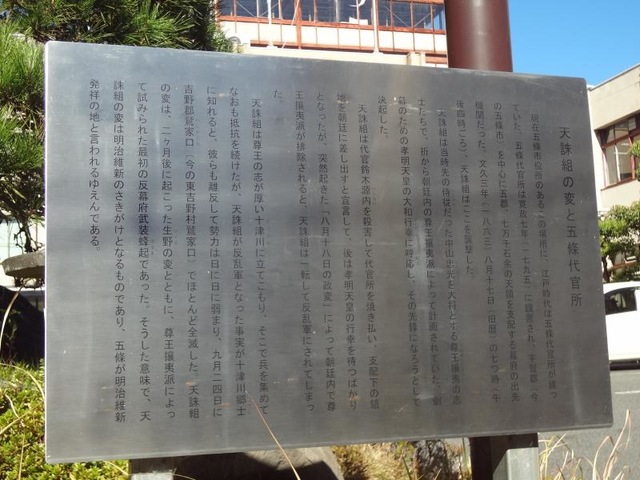 天誅組の変と五條代官所
現在五條市役所のあるこの場所に、江戸時代は五條代官所が建っ
ていた。五條代官所は寛政七年(一七九五)に設置され、宇智郡(今
の五條市)を中心に五郡、七万千石余の天領を支配する幕府の出先
機関だった。文久三年(一八六三)八月十七日(旧暦)の七つ時(午
後四時)ごろ、天誅組はここを襲撃した。
天誅組は当時先の侍従だった中山忠光を大将とする尊王攘夷の志
士たちで、折から朝廷内の尊王攘夷派によって計画されていた、倒
幕のための孝明天皇の大和行幸に呼応し、その先鋒になろうとして
決起した。
天誅組は代官鈴木源内を殺害して代官所を焼き払い、支配下の諸
地を朝廷に差し出すと宣言して、後は孝明天皇の行幸を待つばかり
となったが、突然起きた「八月十八日の政変」によって朝廷内で尊
王攘夷派が排除されると、天誅組は一転して反乱軍にされてしまっ
た。
天誅組は尊王の志が厚い十津川に立てこもり、そこで兵を集めて
なおも抵抗を続けたが、天誅組が反乱軍となった事実が十津川郷士
に知れると、彼らも離反して勢力は日に日に弱まり、九月二四日に
吉野郡鷲家口(今の東吉野村鷲家口)でほとんど全滅した。天誅組
の変は、二ヶ月後に起こった生野の変とともに、尊王攘夷派によっ
て試みられた最初の反幕府武装蜂起であった。そうした意味で、天
誅組の変は明治維新のさきがけとなるものであり、五條が明治維新
発祥の地と言われるゆえんである。